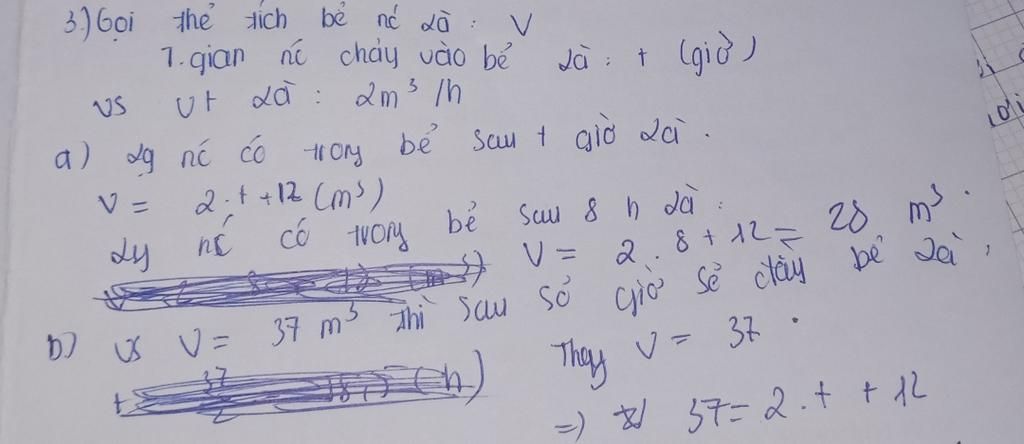 3.) Gọi thể tích bể nć là : V
T.gian nć chảy vào bể là : t (giờ)
vs vt là : 2m³/h
a) lg nć có trong bể sau t giờ là .
V = 2.t+12 (m³)
lg nć có trong bể sau 8 h là :
V = 2.8+12 = 28 m³.
b) vs V = 37 m³ thì sau số giờ sẽ đầy bể là,
Thay V = 37 .
=) 37 = 2.t + 12